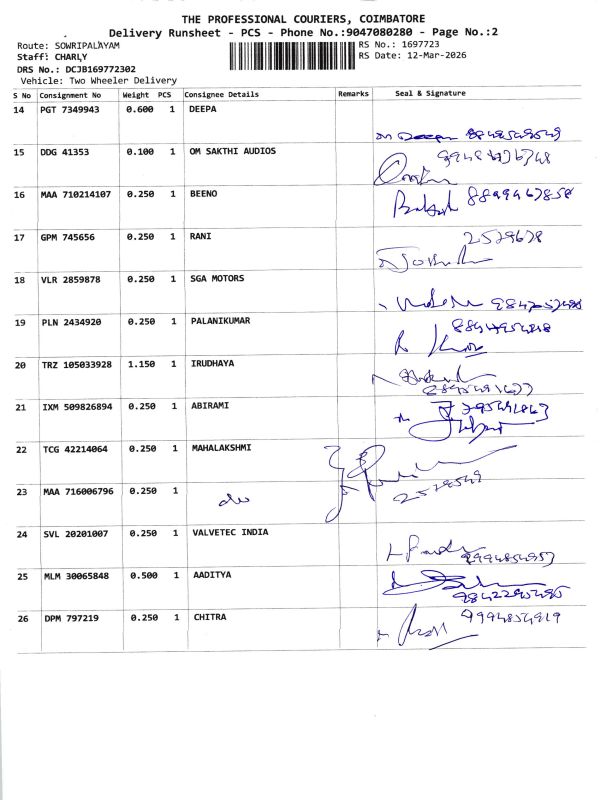 THE PROFESSIONAL COURIERS, COIMBATORE
Delivery Runsheet - PCS - Phone No.:9047080280 - Page No.:2
Route: SOWRIPALAYAM
RS No.: 1697723
Staff: CHARLY
RS Date: 12-Mar-2026
DRS No.: DCJB169772302
Vehicle: Two Wheeler Delivery
S No Consignment No Weight PCS Consignee Details Remarks Seal & Signature
14 PGT 7349943 0.600 1 DEEPA
Deepa
15 DDG 41353 0.100 1 OM SAKTHI AUDIOS
16 MAA 710214107 0.250 1 BEENO
17 GPM 745656 0.250 1 RANI
2529678
18 VLR 2859878 0.250 1 SGA MOTORS
19 PLN 2434920 0.250 1 PALANIKUMAR
20 TRZ 105033928 1.150 1 IRUDHAYA
21 IXM 509826894 0.250 1 ABIRAMI
22 TCG 42214064 0.250 1 MAHALAKSHMI
23 MAA 716006796 0.250 1
2529549
24 SVL 20201007 0.250 1 VALVETEC INDIA
9994854957
25 MLM 30065848 0.500 1 AADITYA
26 DPM 797219 0.250 1 CHITRA
9994854919